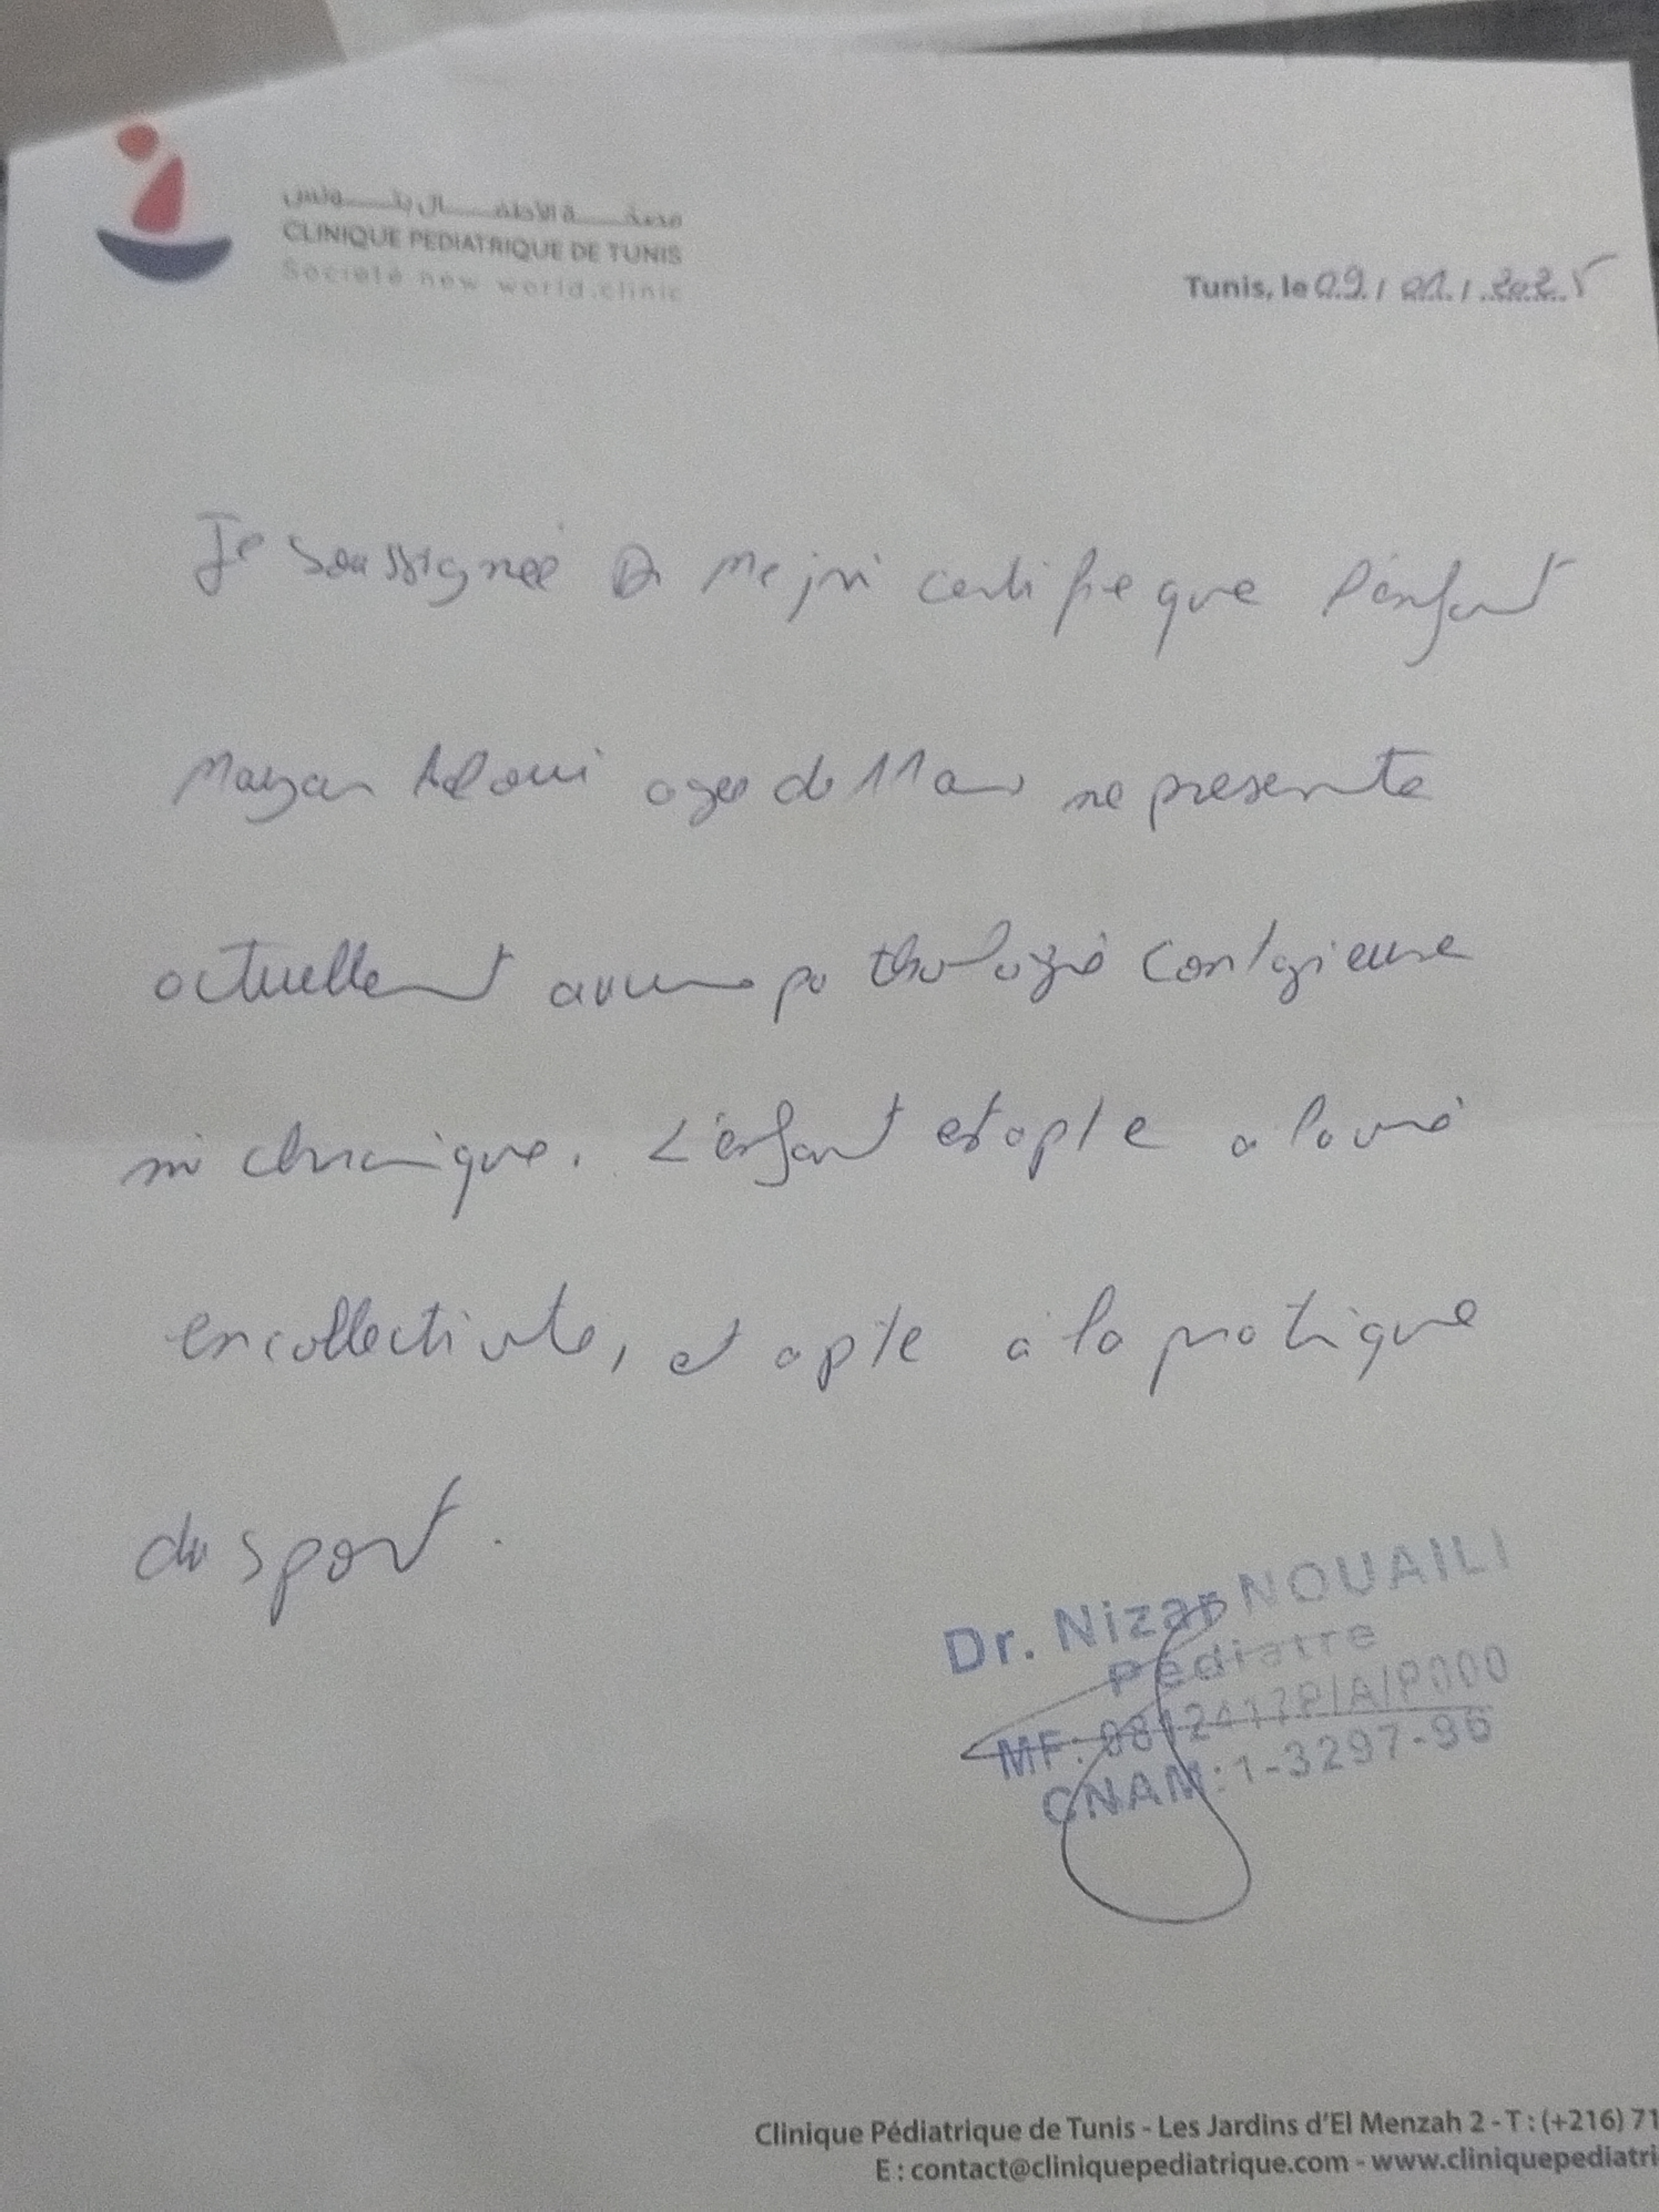 مصحة الأطفال بتونس
CLINIQUE PEDIATRIQUE DE TUNIS
Societé new world.clinic
Tunis, le 09 / 01 / 2025
Je soussignée Dr Mejri certifie que l'enfant
agee de 11 ans ne presente
actuellement aucune pathologie contagieuse
ni chronique. L'enfant est apte a la vie
en collectivite, et apte à la pratique
du sport.
Dr. Nizar NOUAILI
Pédiatre
MF: 0812417P/A/P000
CNAM: 1-3297-96
Clinique Pédiatrique de Tunis - Les Jardins d'El Menzah 2 - T : (+216) 71
E : contact@cliniquepediatrique.com - www.cliniquepediatri